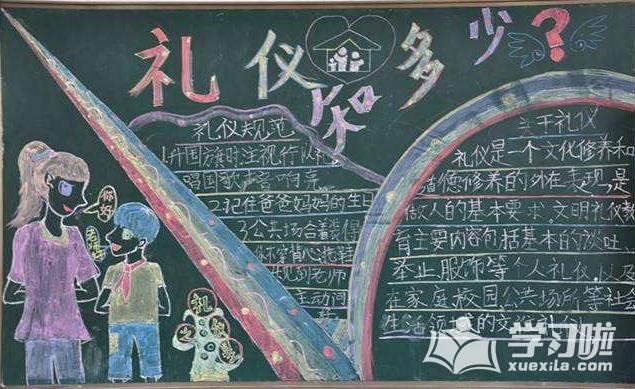 礼仪知多少?
礼仪规范
1.升国旗时注视行队礼
唱国歌声音响亮
2.记住爸爸妈妈的生日
3.公共场合着装得
体不穿背心拖鞋
见到老师
主动问
你好
老师
礼
关于礼仪
礼仪是一个文化修养和
道德修养的外在表现,是
做人的基本要求.文明礼仪教
育主要内容包括基本的谈吐、
举止服饰等个人礼仪,以及
在家庭校园公共场所等社会
生活领域的文明礼仪
学习啦
www.xuexila.com